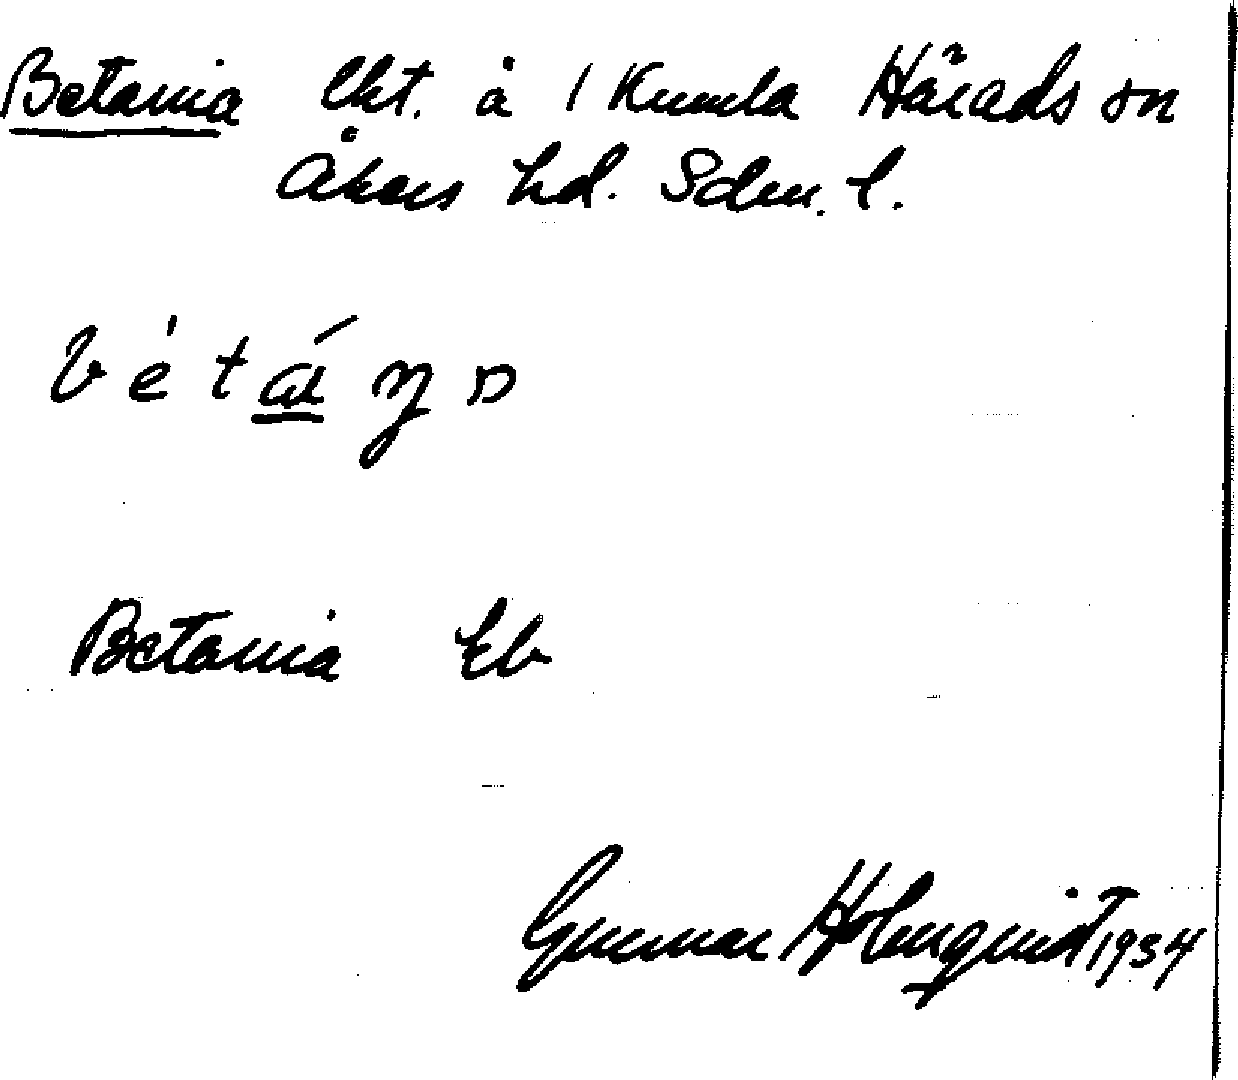 Betania lht. å 1 Kumla Härads sn
Åkers hd. Sdm. l.
Betania Eb
Gunnar Holmquist 1934